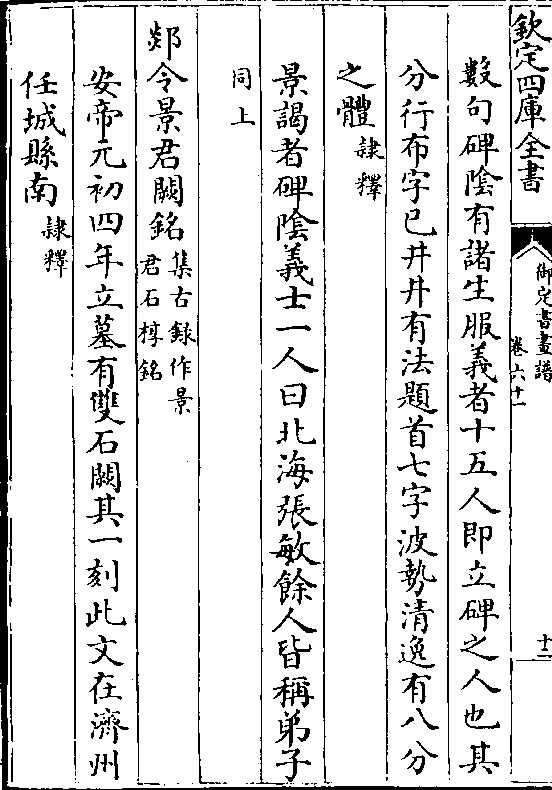 欽定四庫全書
御定書畫譜
卷六十一
十二
數句碑陰有諸生服義者十五人即立碑之人也其
分行布字已井井有法題首七字波勢清逸有八分
之體隷釋
景謁者碑陰義士一人曰北海張敏餘人皆稱弟子
同上
郯令景君闕銘集古錄作景
君石椁銘
安帝元初四年立墓有雙石闕其一刻此文在濟州
任城縣南隷釋